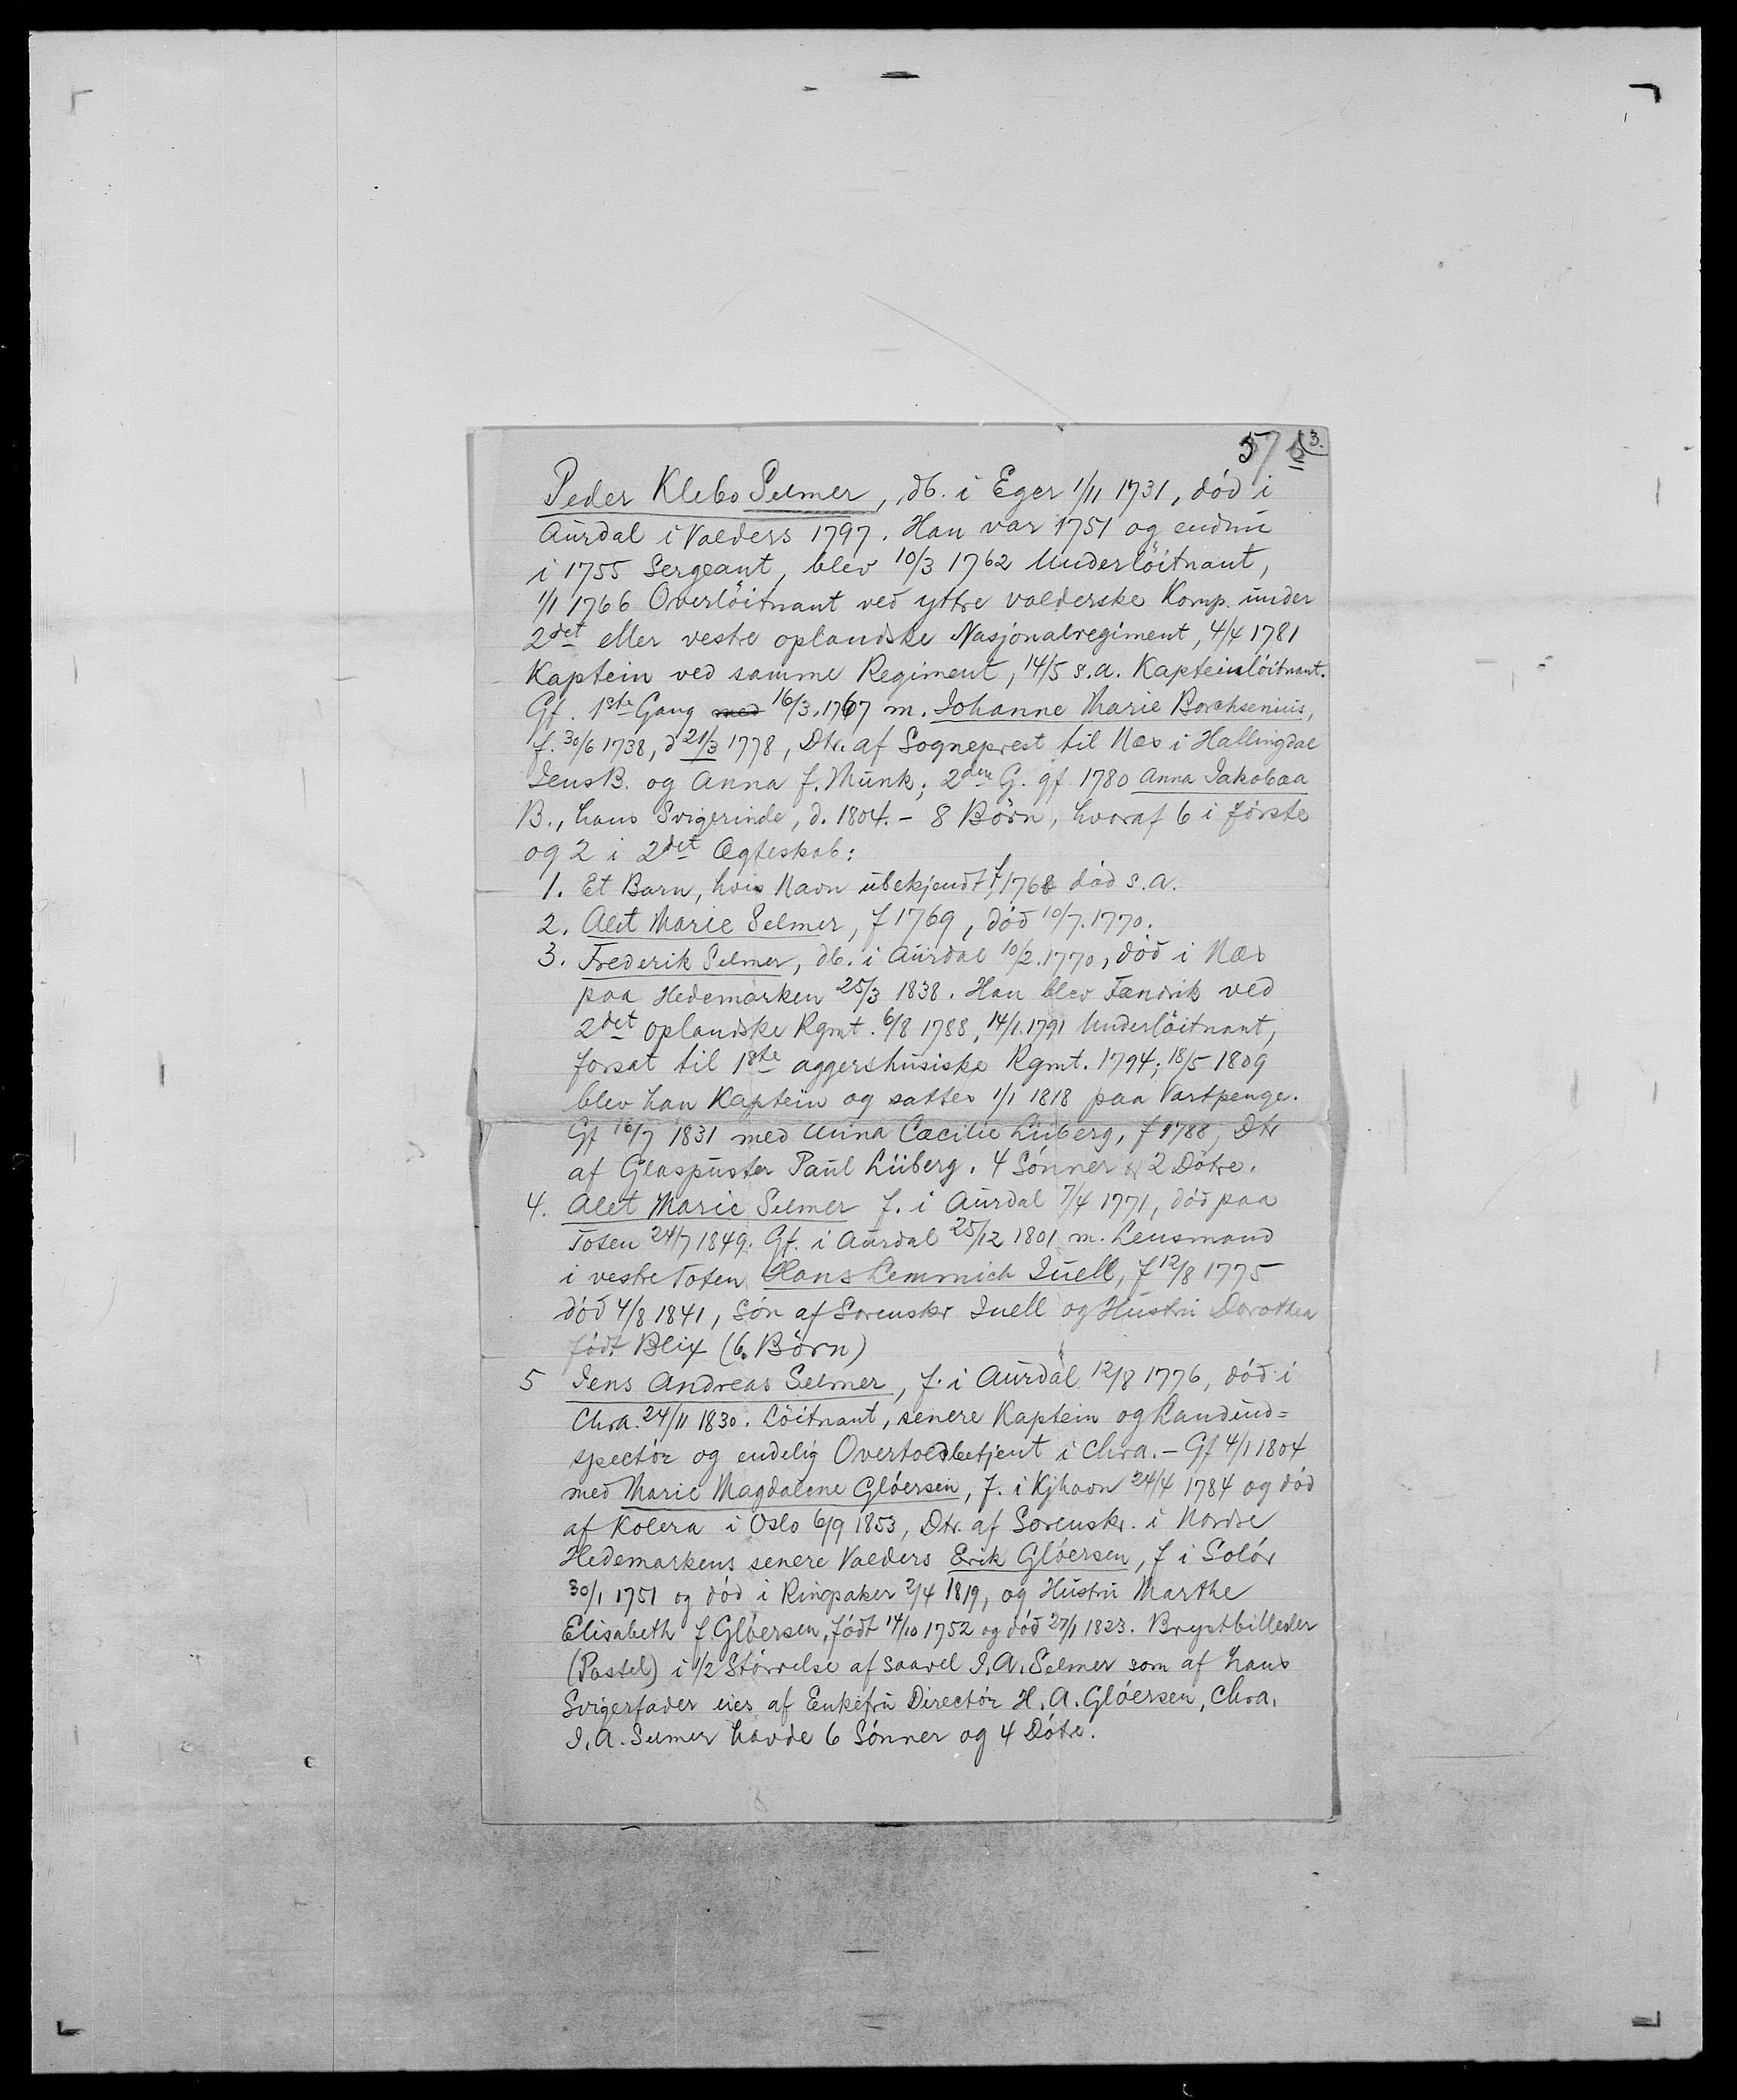 Peder Klebo Selmer, db. i Eger 1/11 1731, død i
Aurdal i Valders 1797. Han var 1751 og endnu
i 1755 Sergeant, blev 10/3 1762 Underlöitnant,
1/1 1766 Overlöitnant ved yttre valderske Komp. under
2det eller vestre oplandske Nasjonalregiment, 4/4 1781
Kaptein ved samme Regiment, 14/5 s.a. Kapteinlöitnant.
Gf. 1ste Gang med 16/3.1767 m. Johanne Marie Borchsenius,
f. 30/6 1738, d 21/3 1778, Dtr. af Sogneprest til Næs i Hallingdal
Jens B. og Anna f. Munk; 2den G. gf 1780 Anna Jakobæa
B., hans Svigerinde, d. 1804. - 8 Börn, hvoraf 6 i første
og 2 i 2det Ægteskab:
1. Et Barn, hvis Navn ubekjendt, f 1768 død s.a.
2. Alet Marie Selmer, f 1769, død 10/7.1770.
3. Frederik Selmer, db. i Aurdal 10/2.1770, død i Næs
paa Hedemarken 25/3 1838. Han blev Fændrik ved
2det oplandske Rgmt. 6/8 1788, 14/1.1791 Underlöitnant,
forsat til 1ste aggershusiske Rgmt. 1794; 18/5 1809
blev han Kaptein og sattes 1/1 1818 paa Vartpenge.
Gf 16/7 1831 med Anna Cæcilie Liiberg, f 1788, Dtr
af Glaspuster Paul Liiberg. 4 Sønner & 2 Døtre.
4. Alet Marie Selmer f. i Aurdal 7/4 1771, død paa
Toten 24/7 1849. Gf. i Aurdal 25/12 1801 m. Lensmand
i vestre Toten Hans Lemmich Juell, f 12/8 1775
død 4/8 1841, Søn af Sorenskr Juell og Hustru Dorothea
født Blix (6. Börn)
5 Jens Andreas Selmer, f. i Aurdal 12/8 1776, død i
Chra. 24/11 1830. Löitnant, senere Kaptein og Landind=
spectør og endelig Overtoldbetjent i Chra. - Gf 4/1 1804
med Marie Magdalene Gløersen, f. i Kjhavn 24/4 1784 og død
af Kolera i Oslo 6/9 1853, Dtr. af Sorenskr. i Nordre
Hedemarkens senere Valders Erik Gløersen, f i Solør
30/1 1751 og død i Ringsaker 2/4 1819, og Hustru Marthe
Elisabeth f. Gløersen, født 14/10 1752 og død 27/1 1823. Brystbilleder
(Pastel) i 1/2 Størrelse af saavel J. A. Selmer som af hans
Svigerfader eies af Enkefru Directør H. A. Gløersen, Chra.
J. A. Selmer havde 6 Sønner og 4 Døtre.